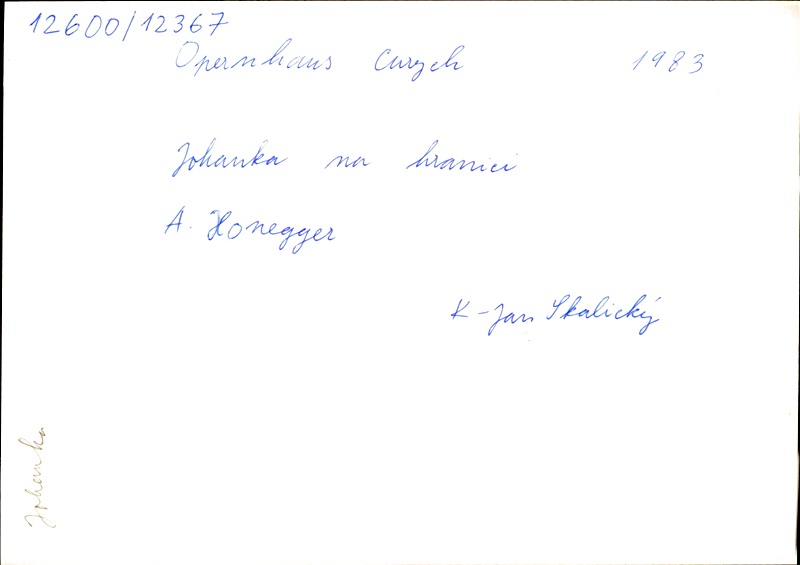 12600/12367
Opernhaus Curych 1983
Johanka na hranici
A. Honegger
K - Jan Skalický
Johanka